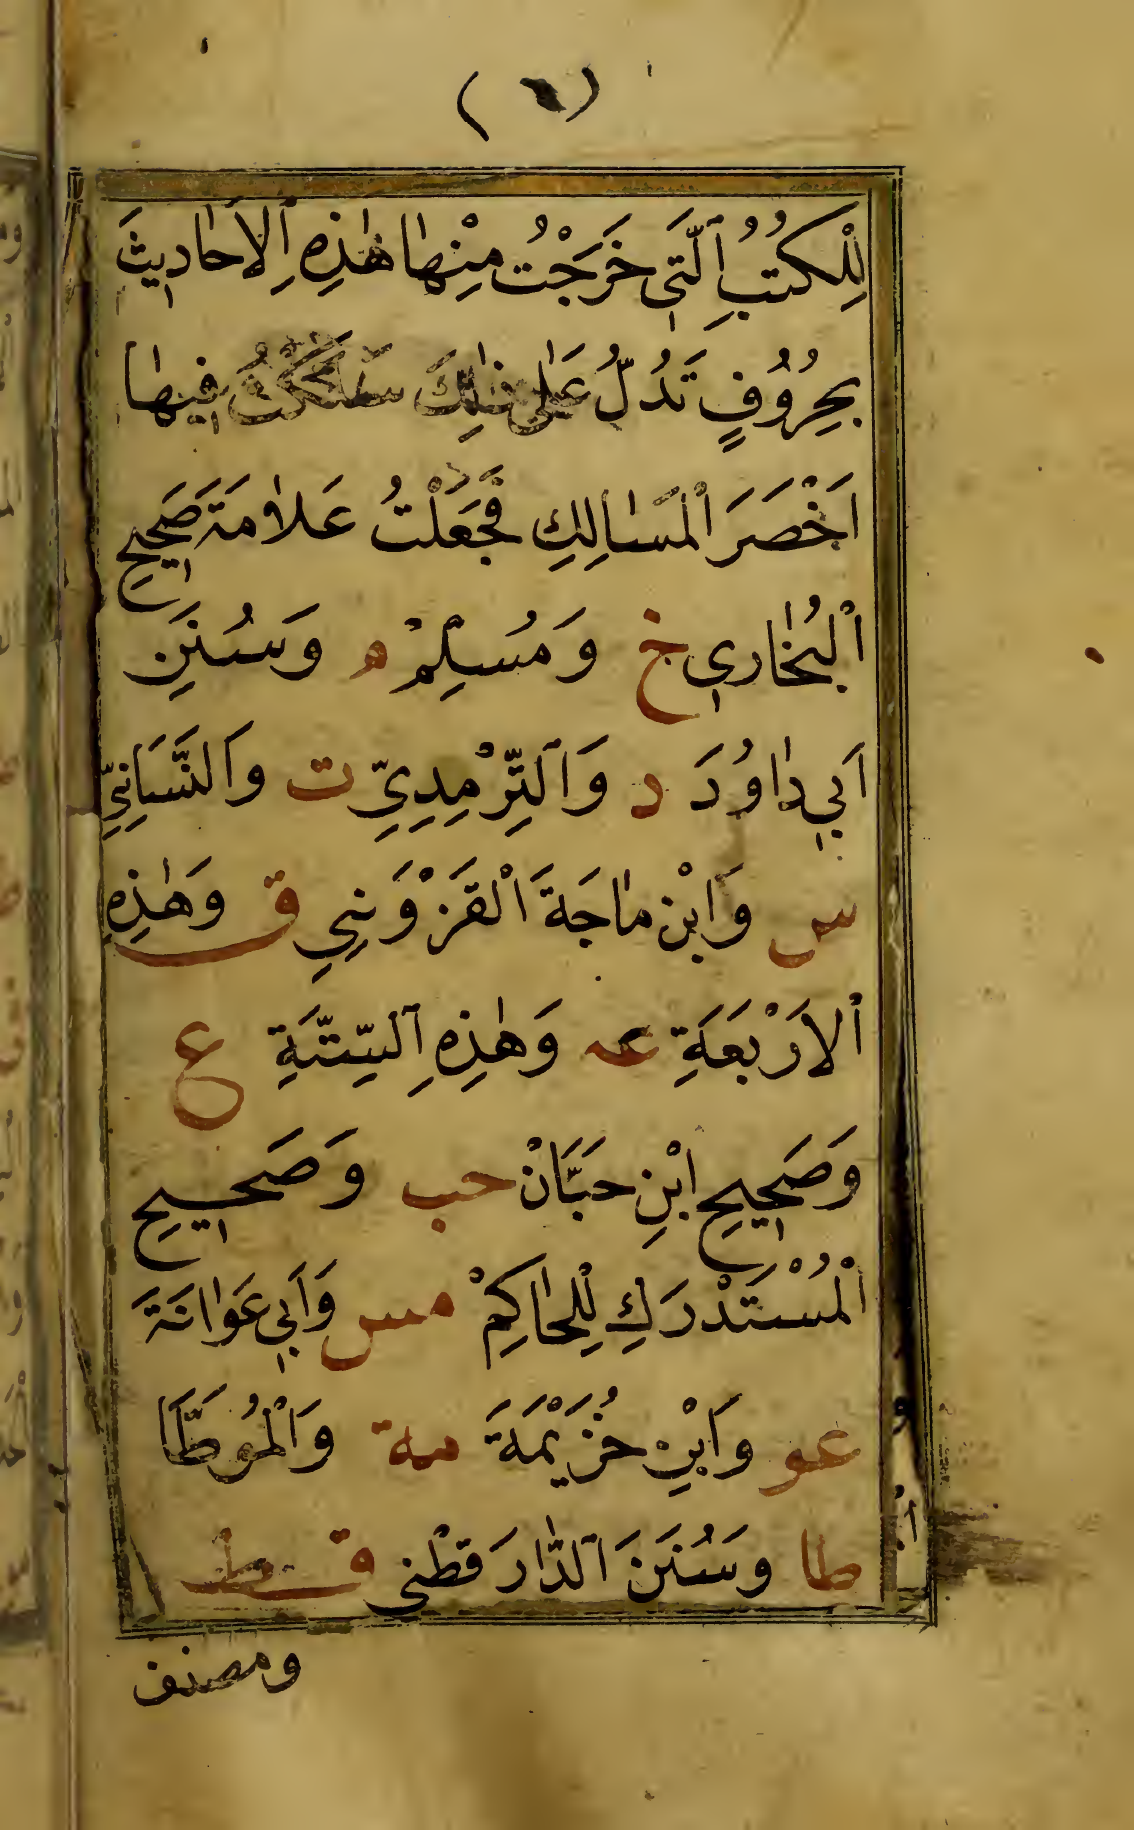 (٦)
لِلْكُتُبِ الَّتِي خَرَجْتُ مِنْهَا هٰذِهِ الاَحَادِيثَ
بِحُرُوُفٍ تَدُلُّ عَلٰى ذٰلِكَ سَلَكْتُ فِيهَا
اَخْصَرَ الْمَسَالِكِ فَجَعَلْتُ عَلاَمَةَ صَحِيحِ
الْبُخَارِي خ وَمُسْلِمْ م وَسُنَنِ
اَبِي دَاوُدَ د وَالتِّرْمِدِيِّ ت وَالنَّسَائِيِّ
س وَابْنِ مَاجَةَ الْقَزْوَنِيِ ق وَهٰذِهِ
الاَرْبَعَةِ عه وَهٰذِهِ السِّتَّةِ ع
وَصَحِيحِ ابْنِ حَبَّانْ حب وَصَحِيحِ
الْمُسْتَدْرَكِ لِلْحَاكِمْ مس وَاَبِي عَوَانَةَ
عو وَابْنِ خُزَيْمَةَ مة وَالْمُوَطَّا
طا وَسُنَنَ الدَّارَقُطْنِي قط
ومصنف